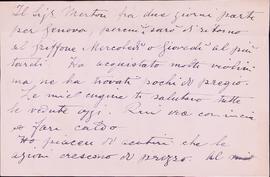 Il Sigr Merton fra due giorni parte
per Genova, perciò sarò di ritorno
al Griffone Mercoledì o Giovedì al più
tardi. Ha acquistato molti violini
ma ne ha trovati pochi di pregio.
Le mie cugine ti salutano tutte
le vedute oggi. Qui ora comincia
a fare caldo.
Ho piacere di sentire che le
azioni crescono di prezzo. Al